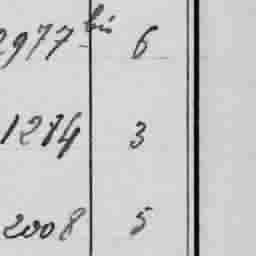 2977 bis 6
1284 3
2008 5